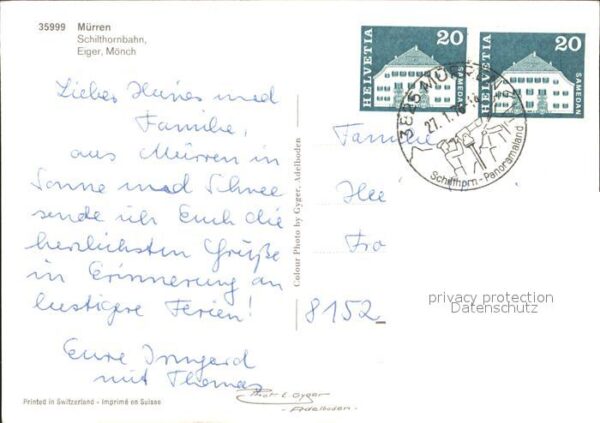 35999 Mürren
Schilthornbahn,
Eiger, Mönch
HELVETIA 20 SAMEDAN
HELVETIA 20 SAMEDAN
3825 MÜRREN
27.1.
Schilthorn-Panoramaland
Liebes Haines und
Familie,
aus Mürren in
Sonne und Schnee
sende ich Euch die
herzlichsten Grüße
in Erinnerung an
lustigere Ferien!
Eure Irmgard
mit Thomas
Colour Photo by Gyger, Adelboden
Familie
Fro
8152
privacy protection
Datenschutz
Printed in Switzerland - Imprimé en Suisse
Phot E. Gyger
- Adelboden -